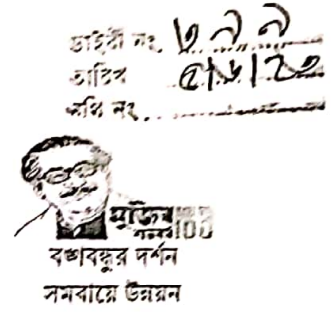 ডাইরী নং ৩৯৯
তারিখ ৫/৬/২৩
নথি নং
মুজিব
শতবর্ষ 100
বঙ্গবন্ধুর দর্শন
সমবায়ে উন্নয়ন